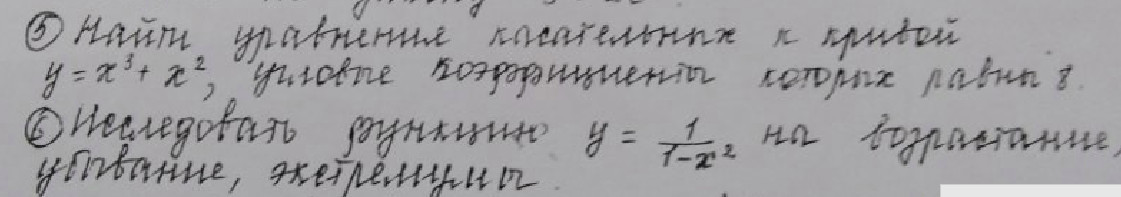 ⑤ Найти уравнения касательных к кривой
y = x³ + x², угловые коэффициенты которых равны 8.
⑥ Исследовать функцию y = 1/(1-x²) на возрастание,
убывание, экстремумы.